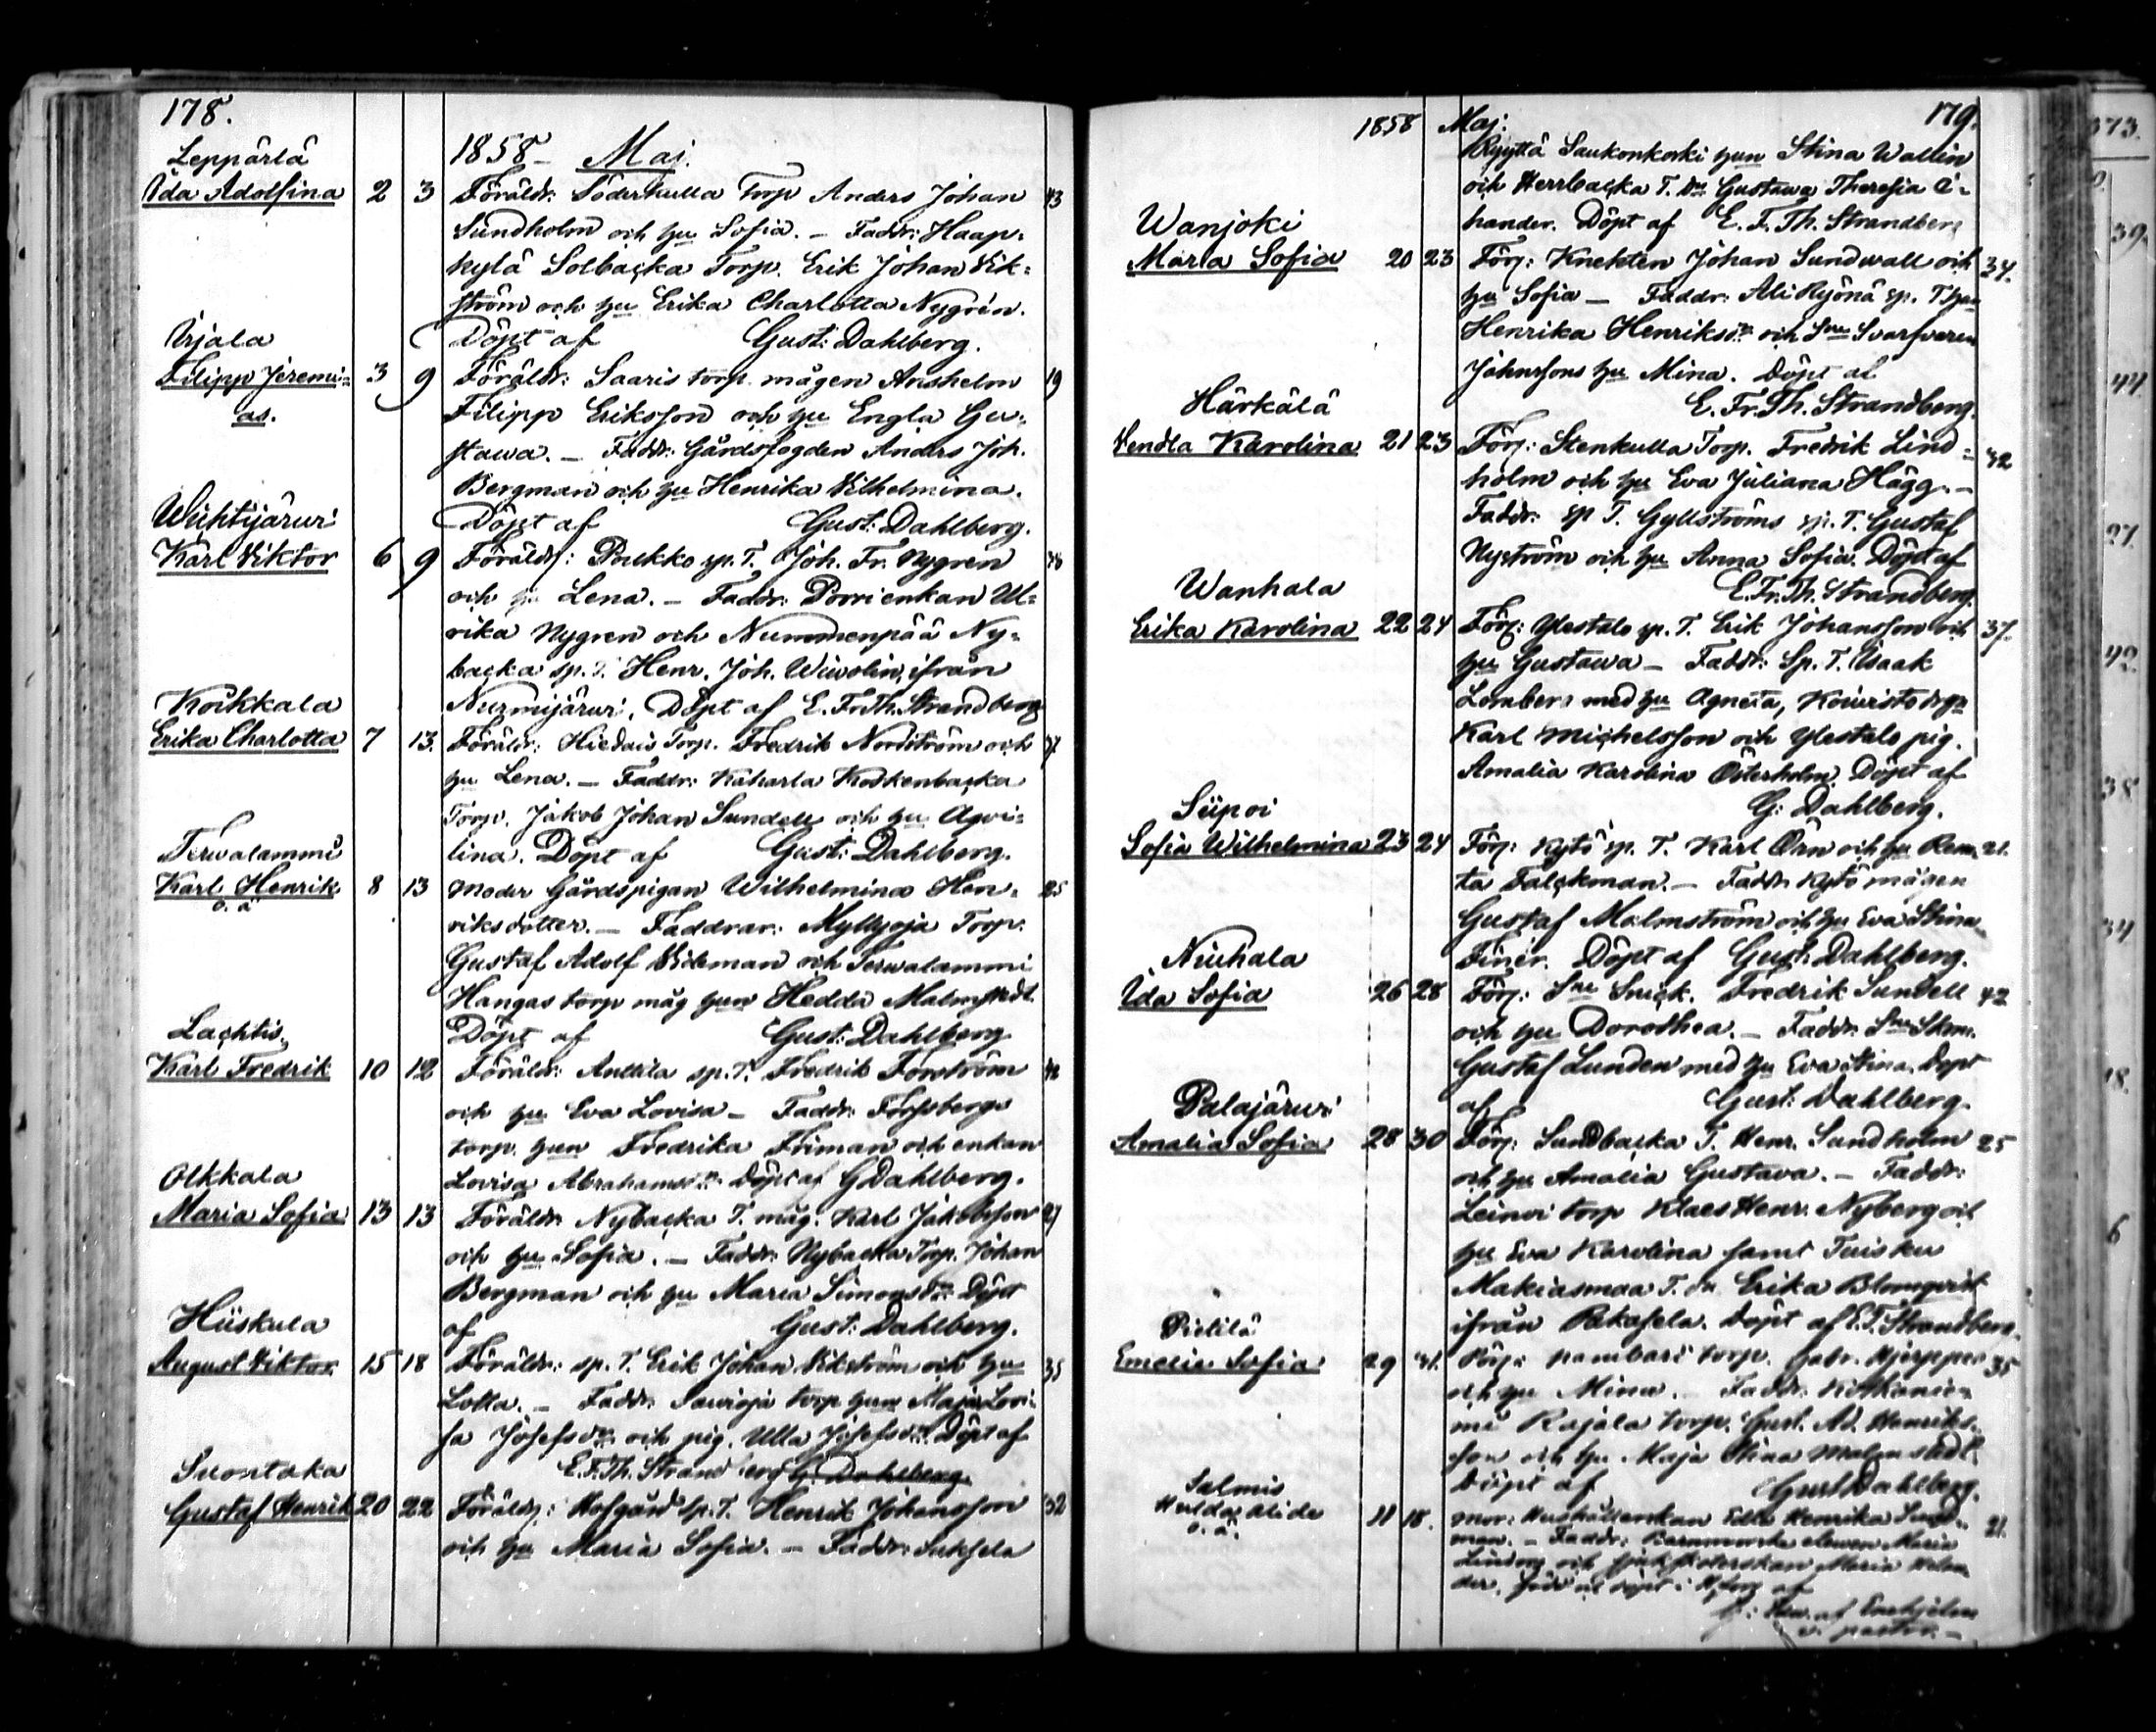 178.
1858 Maj.
Leppärlä
Ida Adolfina 2 3 Föräldr: Söderkulla Torp Anders Johan 43
Sundholm och hu Sofia. – Faddr: Haap-
kylä Solbacka Torp. Erik Johan Vik-
ström och hu Erika Charlotta Nygrén.
Döpt af Gust: Dahlberg.
Irjala
Filipp Jeremi- 3 9 Föräldr: Saaris torp. mågen Anshelm 19
as. Filipp Eriksson och hu Engla Gu-
stawa. – Faddr: Gårdsfogden Anders Joh.
Bergman och hu Henrika Vilhelmina.
Döpt af Gust: Dahlberg.
Wichtijärwi
Karl Viktor 6 9 Föräldr: Pukko sp. T. Joh. Fr. Nygren 38
och hu Lena. – Faddr: Porrienkan Ul-
rika Nygren och Nummenpää Ny-
backa sp. T. Henr. Joh. Wiwolin, ifrån
Nurmijärwi. Döpt af E. Fr. Th. Strandberg
Koikkala
Erika Charlotta 7 13. Föräldr: Hiedais Torp. Fredrik Nordström och 37
hu Lena. – Faddr: Kaharla Koskenbacka
Torp. Jakob Johan Sundell och hu Agvi-
lina. Döpt af Gust: Dahlberg.
Terwalammi
Karl Henrik 8 13 Moder Gårdspigan Wilhelmina Hen- 25
o. ä riksdotter. – Faddrar: Myllyoja Torp.
Gustaf Adolf Videman och Terwalammi
Hangas torp måg hun Hedda Malmstedt.
Döpt af Gust: Dahlberg
Lachtis.
Karl Fredrik 10 12 Föräldr: Anttila sp. T. Fredrik Forström 42
och hu Eva Lovisa – Faddr: Forssbergs
torp. hun Fredrika Friman och enkan
Lovisa Abrahamsdr. Döpt af G Dahlberg.
Olkkala
Maria Sofia 13 13 Föräldr: Nybacka T. måg. Karl Jakobsson 27
och hu Sofia. – Faddr: Nybacka Torp. Johan
Bergman och hu Maria Simonsdr. Döpt
af Gust: Dahlberg.
Hiiskula
August Viktor 15 18 Föräldr: sp. T. Erik Johan Vikström och hu 35
Lotta. – Faddr: Savioja torp hun Maja Lovi-
sa Josefsdr. och pig. Ulla Josefsdr. Döpt af
E. F. Th. Strandberg G. Dahlberg.
Suontaka
Gustaf Henrik 20 22 Föräldr: Hofgård sp. T. Henrik Johansson 32
och hu Maria Sofia. – Faddr: Suksela
1858 Maj: 179.
Ryyttä Saukonkoski hun Stina Wallin
och Herrbacka T. Dr Gustawa Theresia
hander. Döpt af E. F. Th. Strandberg
Wanjoki
Maria Sofia 20 23 Förs: Knekten Johan Sundwall och 34.
hu Sofia – Faddr: Ali Kyönä sp. T hu
Henrika Henriksdr. och Svarfvaren
Johnssons hu Mina. Döpt af
E. Fr. Th. Strandberg.
Härkälä
Vendla Karolina 21 23 Förs: Stenkulla Torp. Fredrik Lind- 32
holm och hu Eva Juliana Hägg. –
Faddr: sp T. Gyllströms sp. T. Gustaf
Nyström och hu Anna Sofia. Döpt af
E. Fr. Th. Strandberg.
Wanhala
Erika Karolina 22 24 Förs: Ylestalo sp. T. Erik Johansson och 37.
hu Gustawa – Faddr: Sp. T. Isaak
Lomberg med hu Agneta, Koiwisto drgn
Karl Michelsson och Ylestalo pig.
Amalia Karolina Österholm. Döpt af
G: Dahlberg.
Siipoi
Sofia Wilhelmina 23 24 Förs: Kytö sp. T. Karl Örn och hu Rena- 21.
ta Falckman. – Faddr: Kytö mågen
Gustaf Malmström och hu Eva Stina
Finér. Döpt af Gust. Dahlberg.
Niuhala
Ida Sofia 26 28 Förs: Sne Snick. Fredrik Sundell 42
och hu Dorothea. – Faddr: Sne Skm.
Gustaf Lunden med hu Eva Stina. Döpt
af Gust: Dahlberg.
Palajärwi
Amalia Sofia 28 30 Förs: Sundbacka T. Henr. Sundholm 25
och hu Amalia Gustava. – Faddr:
Leinoi torp Klaes Henr. Nyberg och
hu Eva Karolina samt Tuisku
Makiasmaa T. dr Erika Blomqvist
ifrån Pakasela. Döpt af E. F. Strandberg.
Pietilä
Emelie Sofia 29 31. Förs: Pambari torp. Gabr. Hjerppe 35
och hu Mina. – Faddr: Koikanie-
mi Rajala torp. Gust. Ad. Henriks-
son och hu Maja Stina Malmstedt.
Döpt af Gust Dahlberg.
Salmis
Hulda Alida 11 18. Mor: Hushållerskan Edla Henrika Sund- 21.
o. ä. man. – Faddr: Barnmorske eleven Maria
och Sjuksköterskan Maria Helen
der. Född och döpt i H:fors af
v. pastor. –
373.
39.
44.
27.
42.
38
34
18.
6